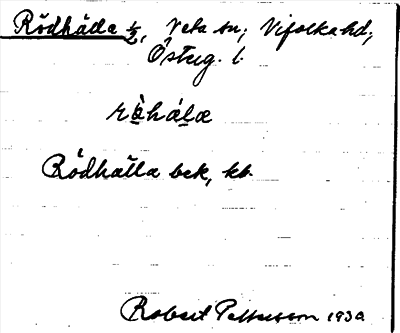 Rödhälla 1/2, Veta sn; Vifolka hd,
Östug. l.
rö̀hálæ
Rödhälla bek, kb.
Robert Pettersson 1930